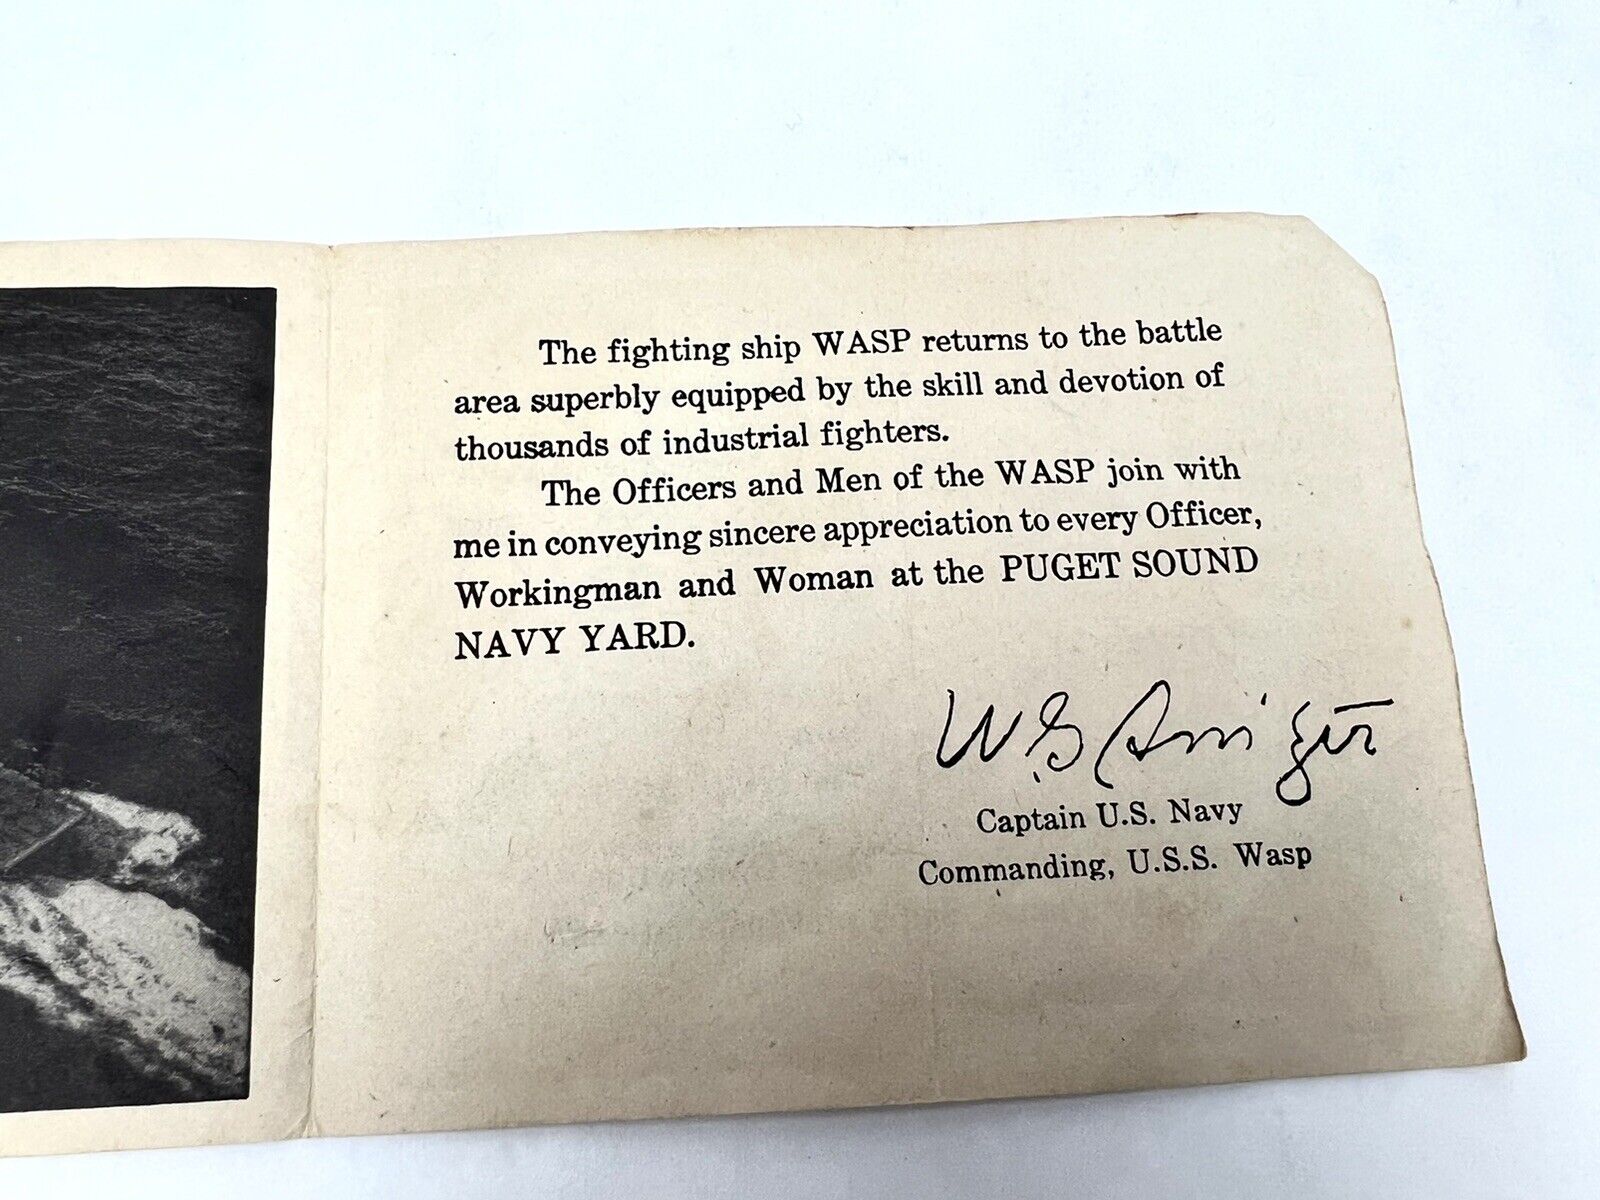 The fighting ship WASP returns to the battle
area superbly equipped by the skill and devotion of
thousands of industrial fighters.
The Officers and Men of the WASP join with
me in conveying sincere appreciation to every Officer,
Workingman and Woman at the PUGET SOUND
NAVY YARD.
W. G.
Captain U.S. Navy
Commanding, U.S.S. Wasp